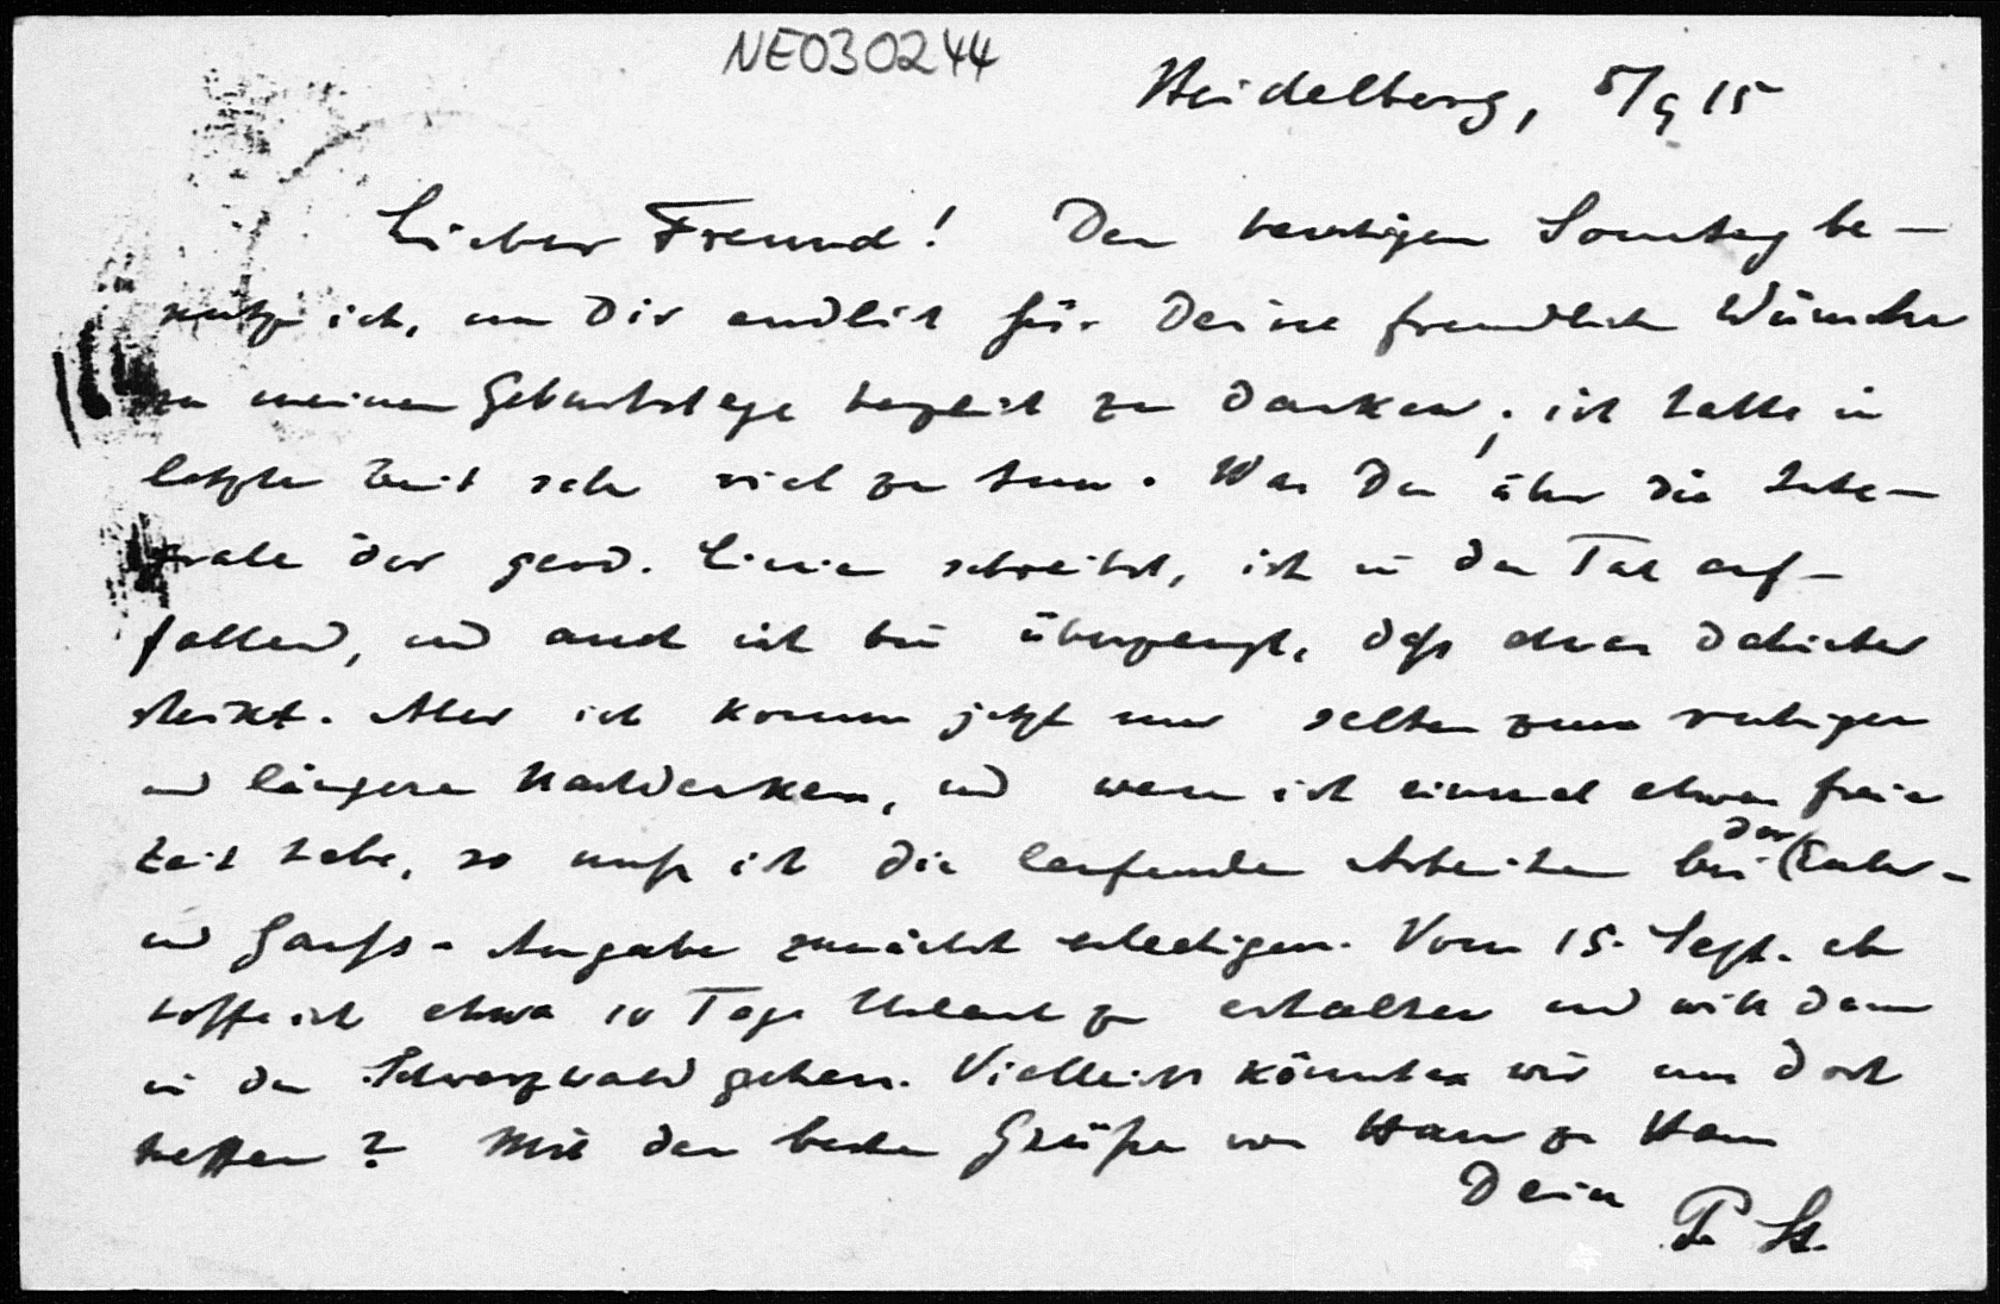 NE030244
Heidelberg, 5/9 15
Lieber Freund! Den heutigen Sonntag be-
nutze ich, um Dir endlich für Deine freundlichen Wünsche
zu meinem Geburtstage herzlich zu danken; ich hatte in
letzter Zeit sehr viel zu tun. Was Du über die Inte-
grale der geod. Linien schreibst, ist in der Tat auf-
fallend, und auch ich bin überzeugt, daß etwas dahinter
steckt. Aber ich komme jetzt nur selten zum ruhigen
und längeren Nachdenken, und wenn ich einmal etwas freie
Zeit habe, so muß ich die laufenden Arbeiten bei der Euler-
und Gauß-Ausgabe zunächst erledigen. Vom 15. Sept. ab
hoffe ich etwa 10 Tage Urlaub zu erhalten und will dann
in den Schwarzwald gehen. Vielleicht könnten wir uns dort
treffen? Mit den besten Grüßen von Haus zu Haus
Dein
P. St.